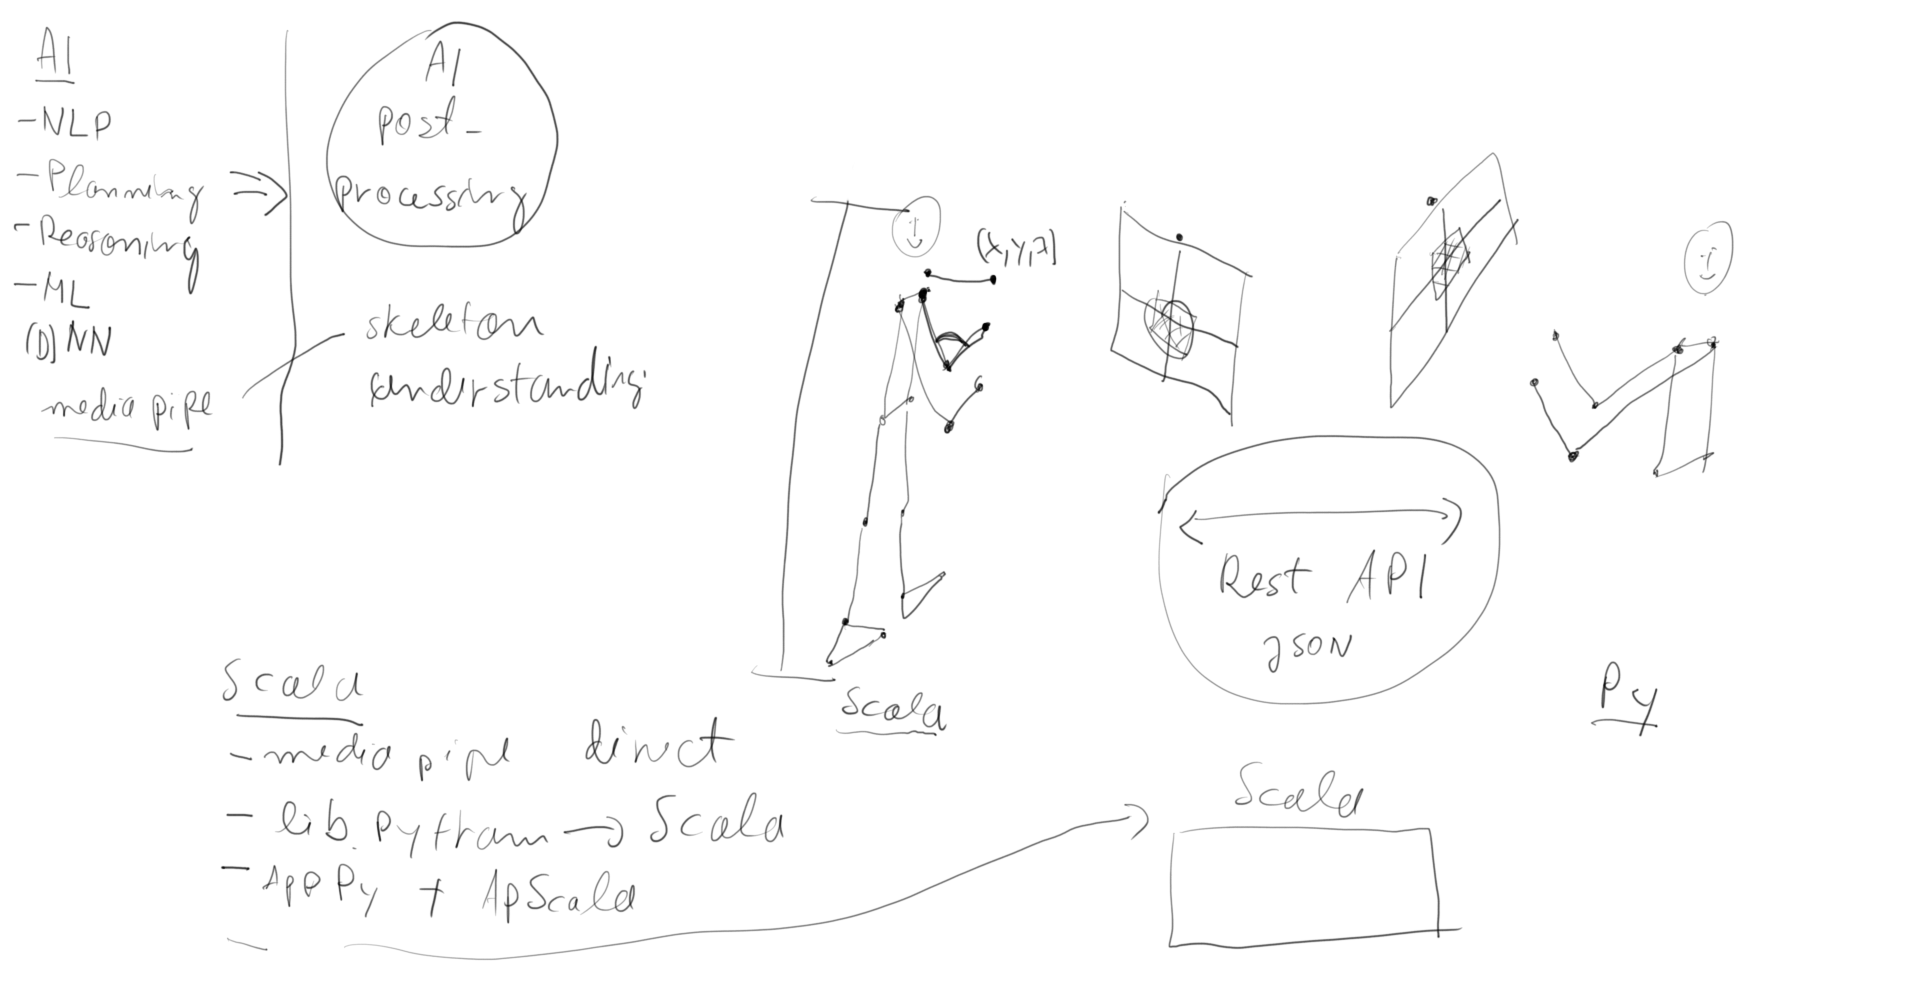 AI
- NLP
- Planning
- Reasoning
- ML
(D) NN
media pipe
AI
post-
processing
skeleton
understanding
(x,y,z)
Rest API
JSON
Scala
Py
Scala
- media pipe direct
- lib. python → Scala
- App Py + ApScala
-
Scala